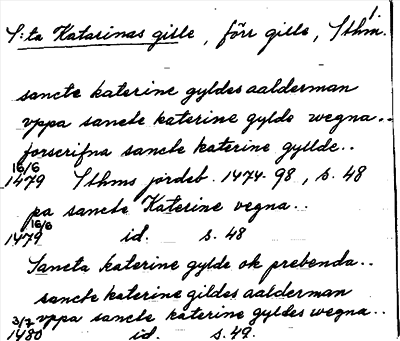 1.
S:ta Katarinas gille, förr gille, Sthm.
sancte katerine gyldes aalderman
vppa sancte katerine gylde wegna..
forscrifna sancte katerine gyllde..
16/6
1479 Sthms jordeb. 1474-98, s. 48
pa sancte Katerine vegna..
16/6
1479 id. s. 48
Sancta katerine gylde ok prebenda..
sancte katerine gildes aalderman
vppa sancte katerine gyldes wegna..
3/7
1480 id. s. 49.